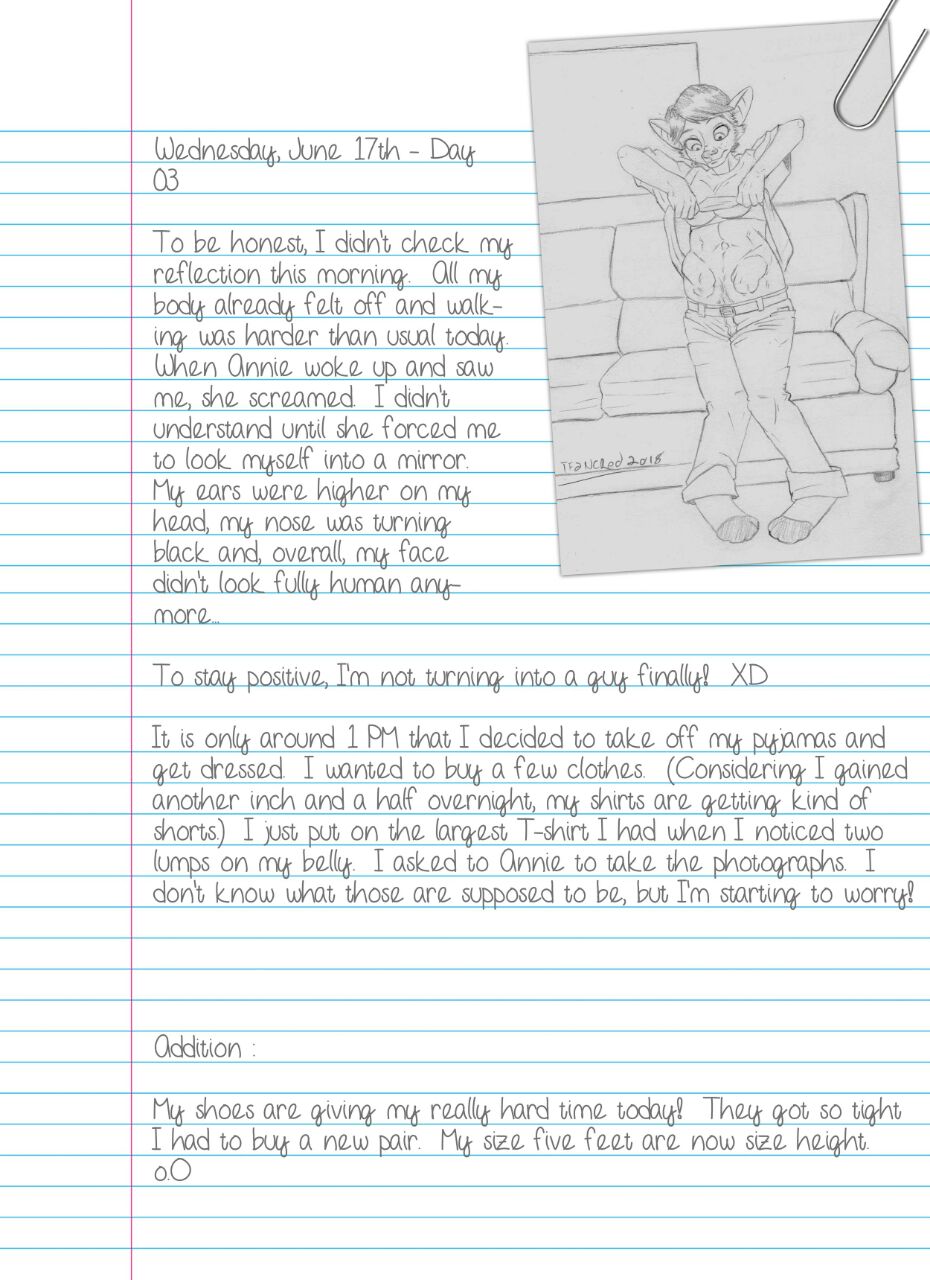 Wednesday, June 17th - Day
03
To be honest, I didn't check my
reflection this morning. All my
body already felt off and walk-
ing was harder than usual today.
When Annie woke up and saw
me, she screamed. I didn't
understand until she forced me
to look myself into a mirror.
My ears were higher on my
head, my nose was turning
black and, overall, my face
didn't look fully human any-
more...
TF2NCRed 2018
To stay positive, I'm not turning into a guy finally! XD
It is only around 1 PM that I decided to take off my pyjamas and
get dressed. I wanted to buy a few clothes. (Considering I gained
another inch and a half overnight, my shirts are getting kind of
shorts.) I just put on the largest T-shirt I had when I noticed two
lumps on my belly. I asked to Annie to take the photographs. I
don't know what those are supposed to be, but I'm starting to worry!
Addition :
My shoes are giving my really hard time today! They got so tight
I had to buy a new pair. My size five feet are now size height.
o.O